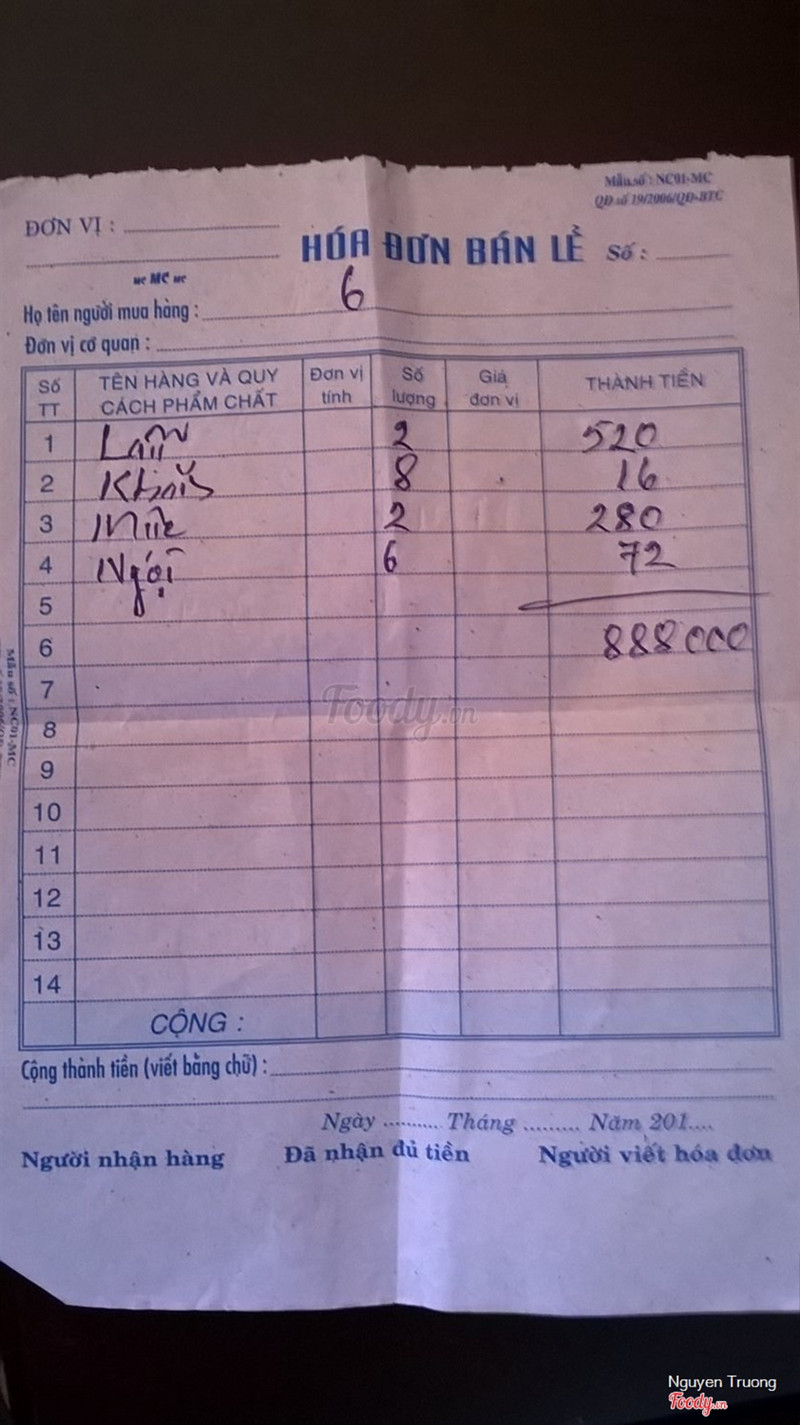 Mẫu số : NC01-MC
QĐ số 19/2006/QĐ-BTC
ĐƠN VỊ :
HÓA ĐƠN BÁN LẺ Số :
MC
Họ tên người mua hàng : 6
Đơn vị cơ quan :
Số TT TÊN HÀNG VÀ QUY CÁCH PHẨM CHẤT Đơn vị tính Số lượng Giá đơn vị THÀNH TIỀN
1 Lẩu 2 520
2 Khăn 8 16
3 Mực 2 280
4 Ngọt 6 72
5
6 888000
7
8
9
10
11
12
13
14
CỘNG :
Cộng thành tiền (viết bằng chữ) :
Ngày .......... Tháng ......... Năm 201....
Người nhận hàng Đã nhận đủ tiền Người viết hóa đơn
Mẫu số : NC01-MC
Foody.vn
Nguyen Truong
Foody.vn